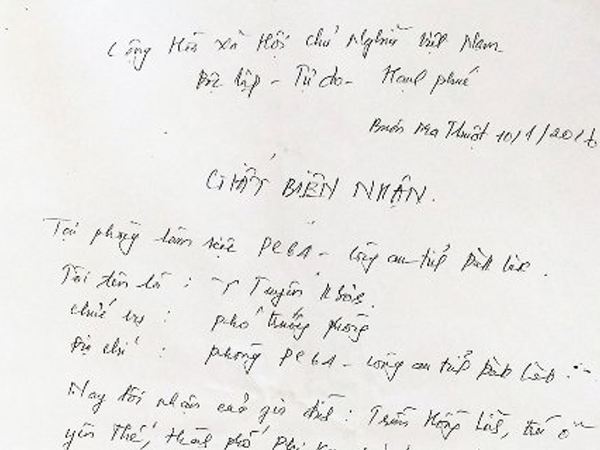 Cộng Hòa xã Hội chủ Nghĩa Việt Nam
Độc lập - Tự do - Hạnh phúc
Buôn Ma Thuột 10/1/2016
GIẤY BIÊN NHẬN.
Tại phòng làm việc PC61 - Công an tỉnh Đắk Lắk.
Tôi tên là : Tuyên
chức vụ : phó trưởng phòng
Địa chỉ : phòng PC61 - Công an tỉnh Đắk Lắk
Nay tôi nhận của gia đình : Trần Hồng trú ở
yên Thế, thành phố